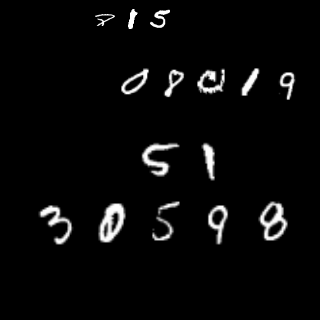 815
08019
51
30598